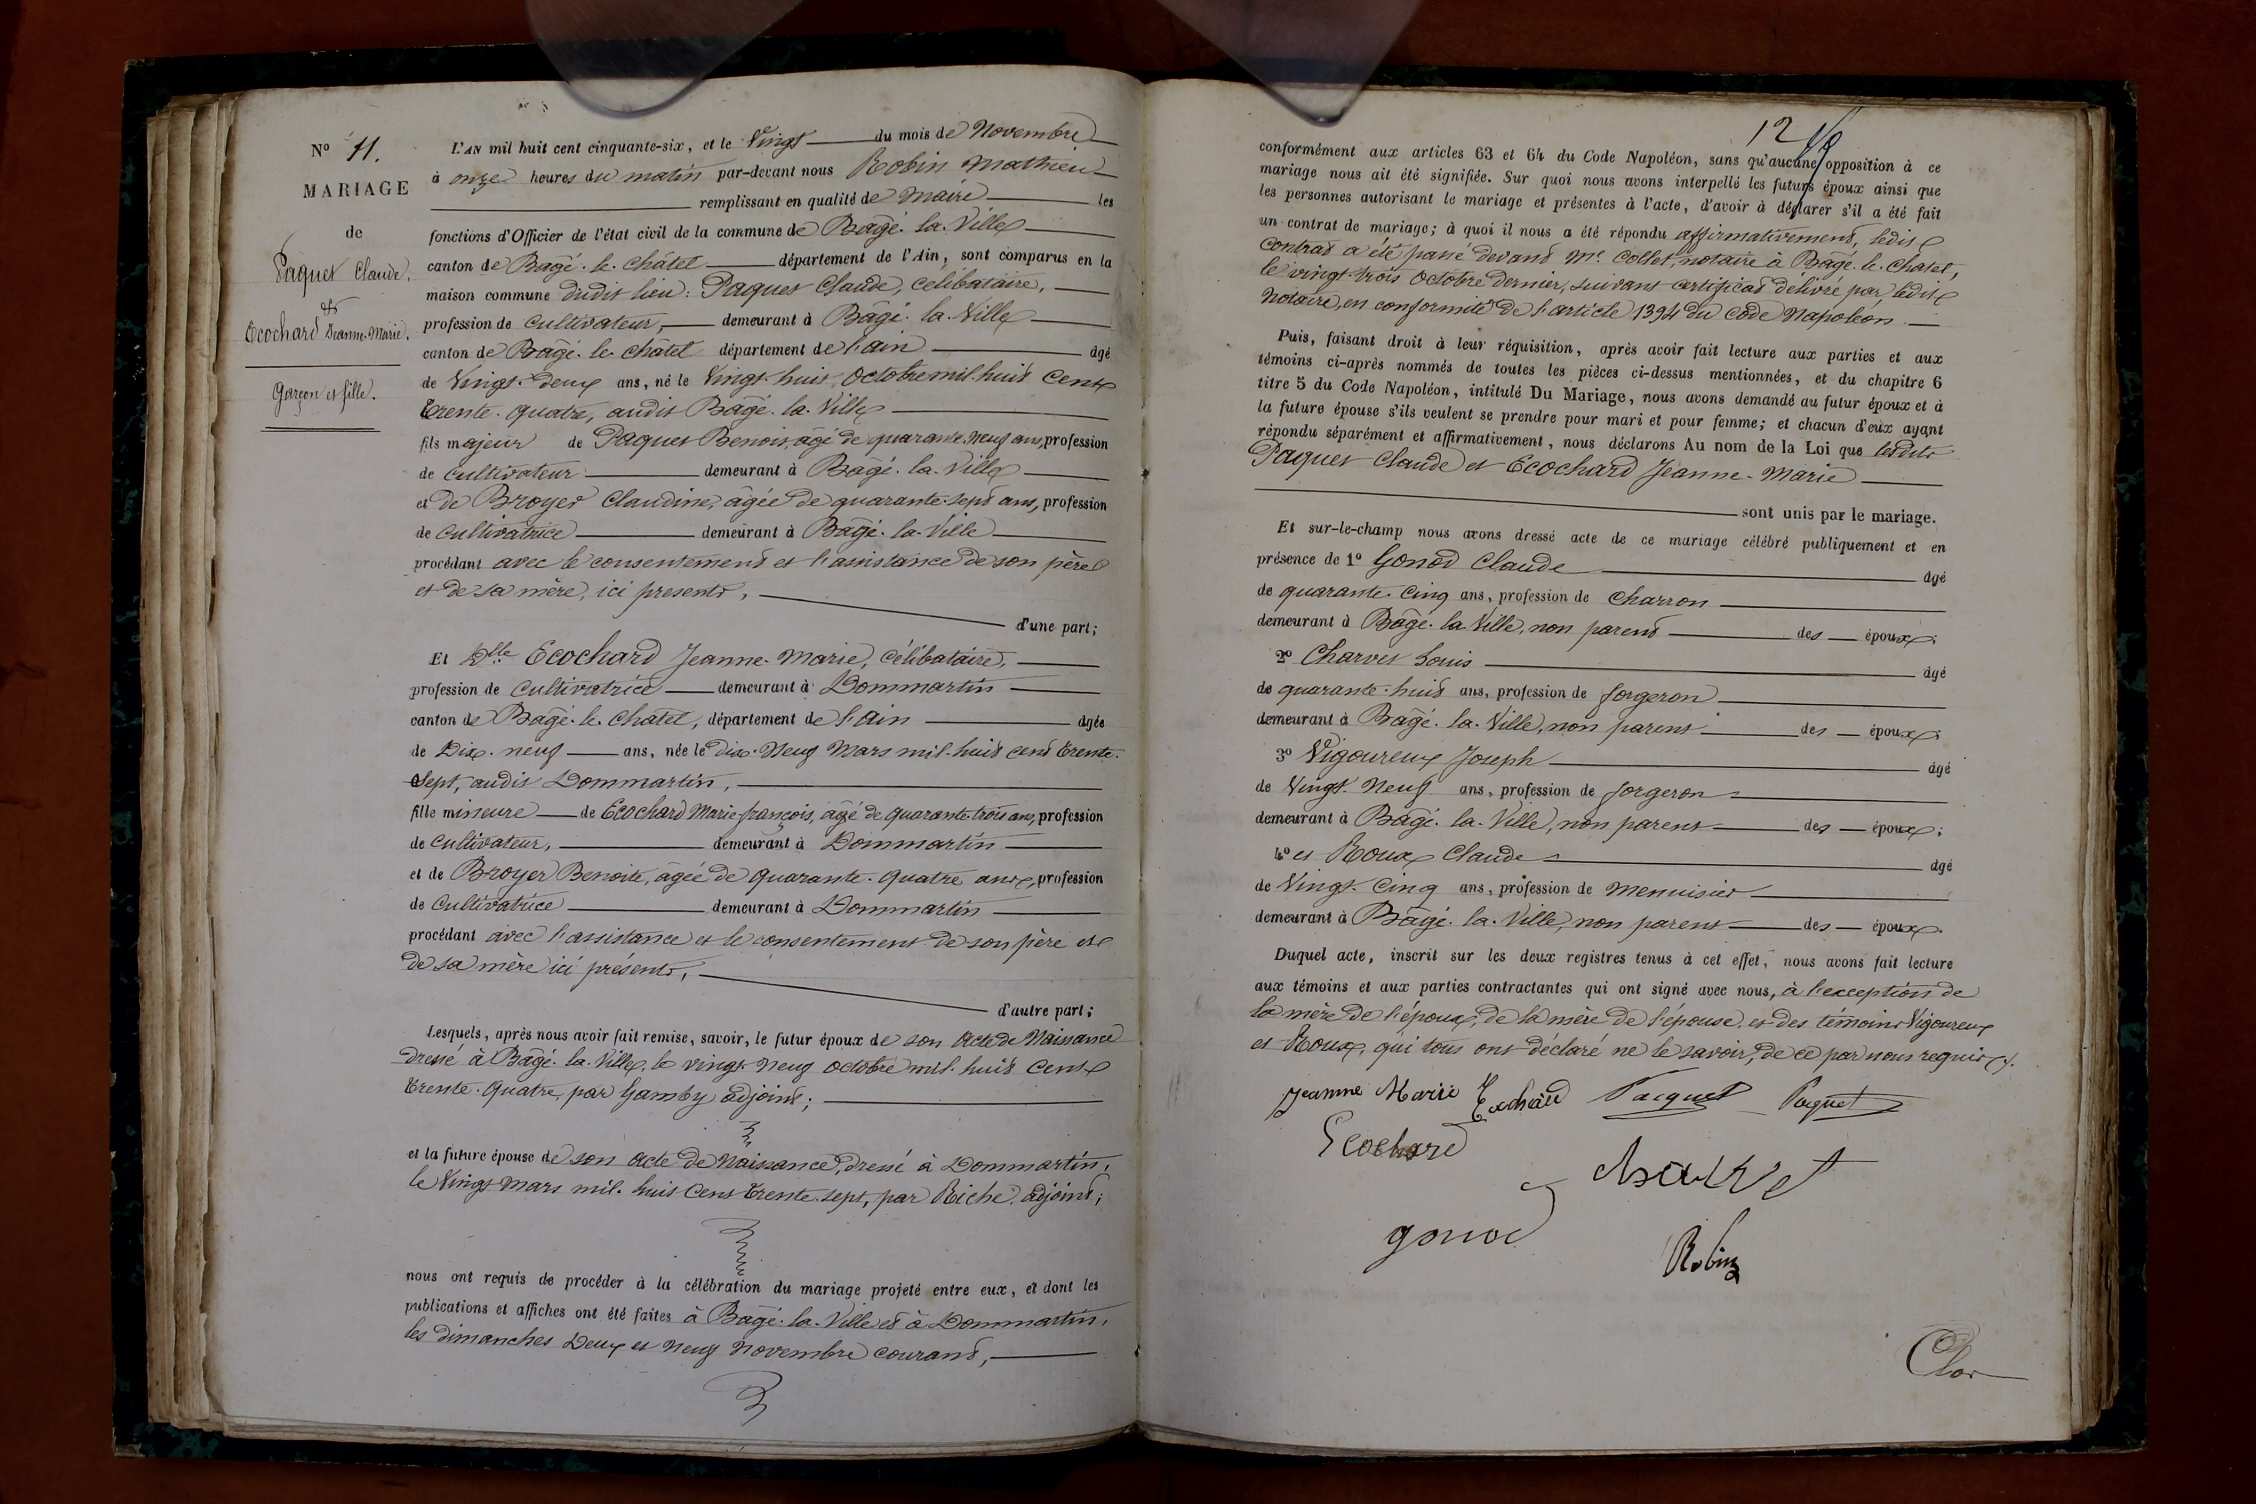 N° 11.
MARIAGE
de
Paquet Claude.
et
Ecochard Jeanne-Marie.
Garçon et fille.
L'AN mil huit cent cinquante-six, et le Vingt du mois de Novembre
à onze heures du matin par-devant nous Robin Mathieu
remplissant en qualité de Maire les
fonctions d'Officier de l'état civil de la commune de Bâgé-la-Ville
canton de Bâgé-le-Châtel département de l'Ain, sont comparus en la
maison commune dudit lieu : Paquet Claude, célibataire,
profession de cultivateur, demeurant à Bâgé-la-Ville
canton de Bâgé-le-Châtel département de l'ain âgé
de Vingt-deux ans, né le Vingt-huit Octobre mil-huit cent
trente-quatre, audit Bâgé-la-Ville
fils majeur de Paquet Benoit, âgé de quarante-neuf ans, profession
de cultivateur demeurant à Bâgé-la-Ville
et de Broyer Claudine, âgée de quarante-sept ans, profession
de cultivatrice demeurant à Bâgé-la-Ville
procédant avec le consentement et l'assistance de son père
et de sa mère, ici présents,
d'une part;
Et Dlle Ecochard Jeanne-Marie, célibataire,
profession de cultivatrice demeurant à Dommartin
canton de Bâgé-le-Châtel, département de l'Ain âgée
de Dix-neuf ans, née le dix-Neuf Mars mil-huit cent trente-
Sept, audit Dommartin,
fille mineure de Ecochard Marie-françois, âgé de quarante-trois ans, profession
de cultivateur, demeurant à Dommartin
et de Broyer Benoite, âgée de quarante-quatre ans, profession
de cultivatrice demeurant à Dommartin
procédant avec l'assistance et le consentement de son père et
de sa mère ici présents,
d'autre part;
Lesquels, après nous avoir fait remise, savoir, le futur époux de son Acte de Naissance
dressé à Bâgé-la-Ville, le vingt-Neuf octobre mil-huit cent
trente-quatre, par Gamby adjoint;
et la future épouse de son acte de Naissance, dressé à Dommartin,
le Vingt mars mil-huit cent trente-sept, par Riche, adjoint;
nous ont requis de procéder à la célébration du mariage projeté entre eux, et dont les
publications et affiches ont été faites à Bâgé-la-Ville et à Dommartin,
les dimanches Deux et Neuf Novembre courant,
12
conformément aux articles 63 et 64 du Code Napoléon, sans qu'aucune opposition à ce
mariage nous ait été signifiée. Sur quoi nous avons interpellé les futurs époux ainsi que
les personnes autorisant le mariage et présentes à l'acte, d'avoir à déclarer s'il a été fait
un contrat de mariage; à quoi il nous a été répondu affirmativement, ledit
contrat a été passé devant Me Collet, notaire à Bâgé-le-Chatel,
le vingt-trois Octobre dernier, suivant certificat délivré par ledit
Notaire, en conformité de l'article 1394 du code Napoléon.
Puis, faisant droit à leur réquisition, après avoir fait lecture aux parties et aux
témoins ci-après nommés de toutes les pièces ci-dessus mentionnées, et du chapitre 6
titre 5 du Code Napoléon, intitulé Du Mariage, nous avons demandé au futur époux et à
la future épouse s'ils veulent se prendre pour mari et pour femme; et chacun d'eux ayant
répondu séparément et affirmativement, nous déclarons Au nom de la Loi que lesdits
Paquet Claude et Ecochard Jeanne-Marie
sont unis par le mariage.
Et sur-le-champ nous avons dressé acte de ce mariage célébré publiquement et en
présence de 1° Gonod Claude âgé
de quarante-cinq ans, profession de charron
demeurant à Bâgé-la-Ville, non parent des époux;
2° Charvet Louis âgé
de quarante-huit ans, profession de forgeron
demeurant à Bâgé-la-Ville, non parent des époux;
3° Vigoureux Joseph âgé
de Vingt-Neuf ans, profession de forgeron
demeurant à Bâgé-la-Ville, non parent des époux;
4° et Roux Claude âgé
de Vingt-Cinq ans, profession de menuisier
demeurant à Bâgé-la-Ville, non parent des époux.
Duquel acte, inscrit sur les deux registres tenus à cet effet, nous avons fait lecture
aux témoins et aux parties contractantes qui ont signé avec nous, à l'exception de
la mère de l'époux, de la mère de l'épouse, et des témoins Vigoureux
et Roux, qui tous ont déclaré ne le savoir, de ce par nous requis.
Jeanne Marie Ecochard Paquet Paquet
Ecochard
Charvet
gonod
Robin